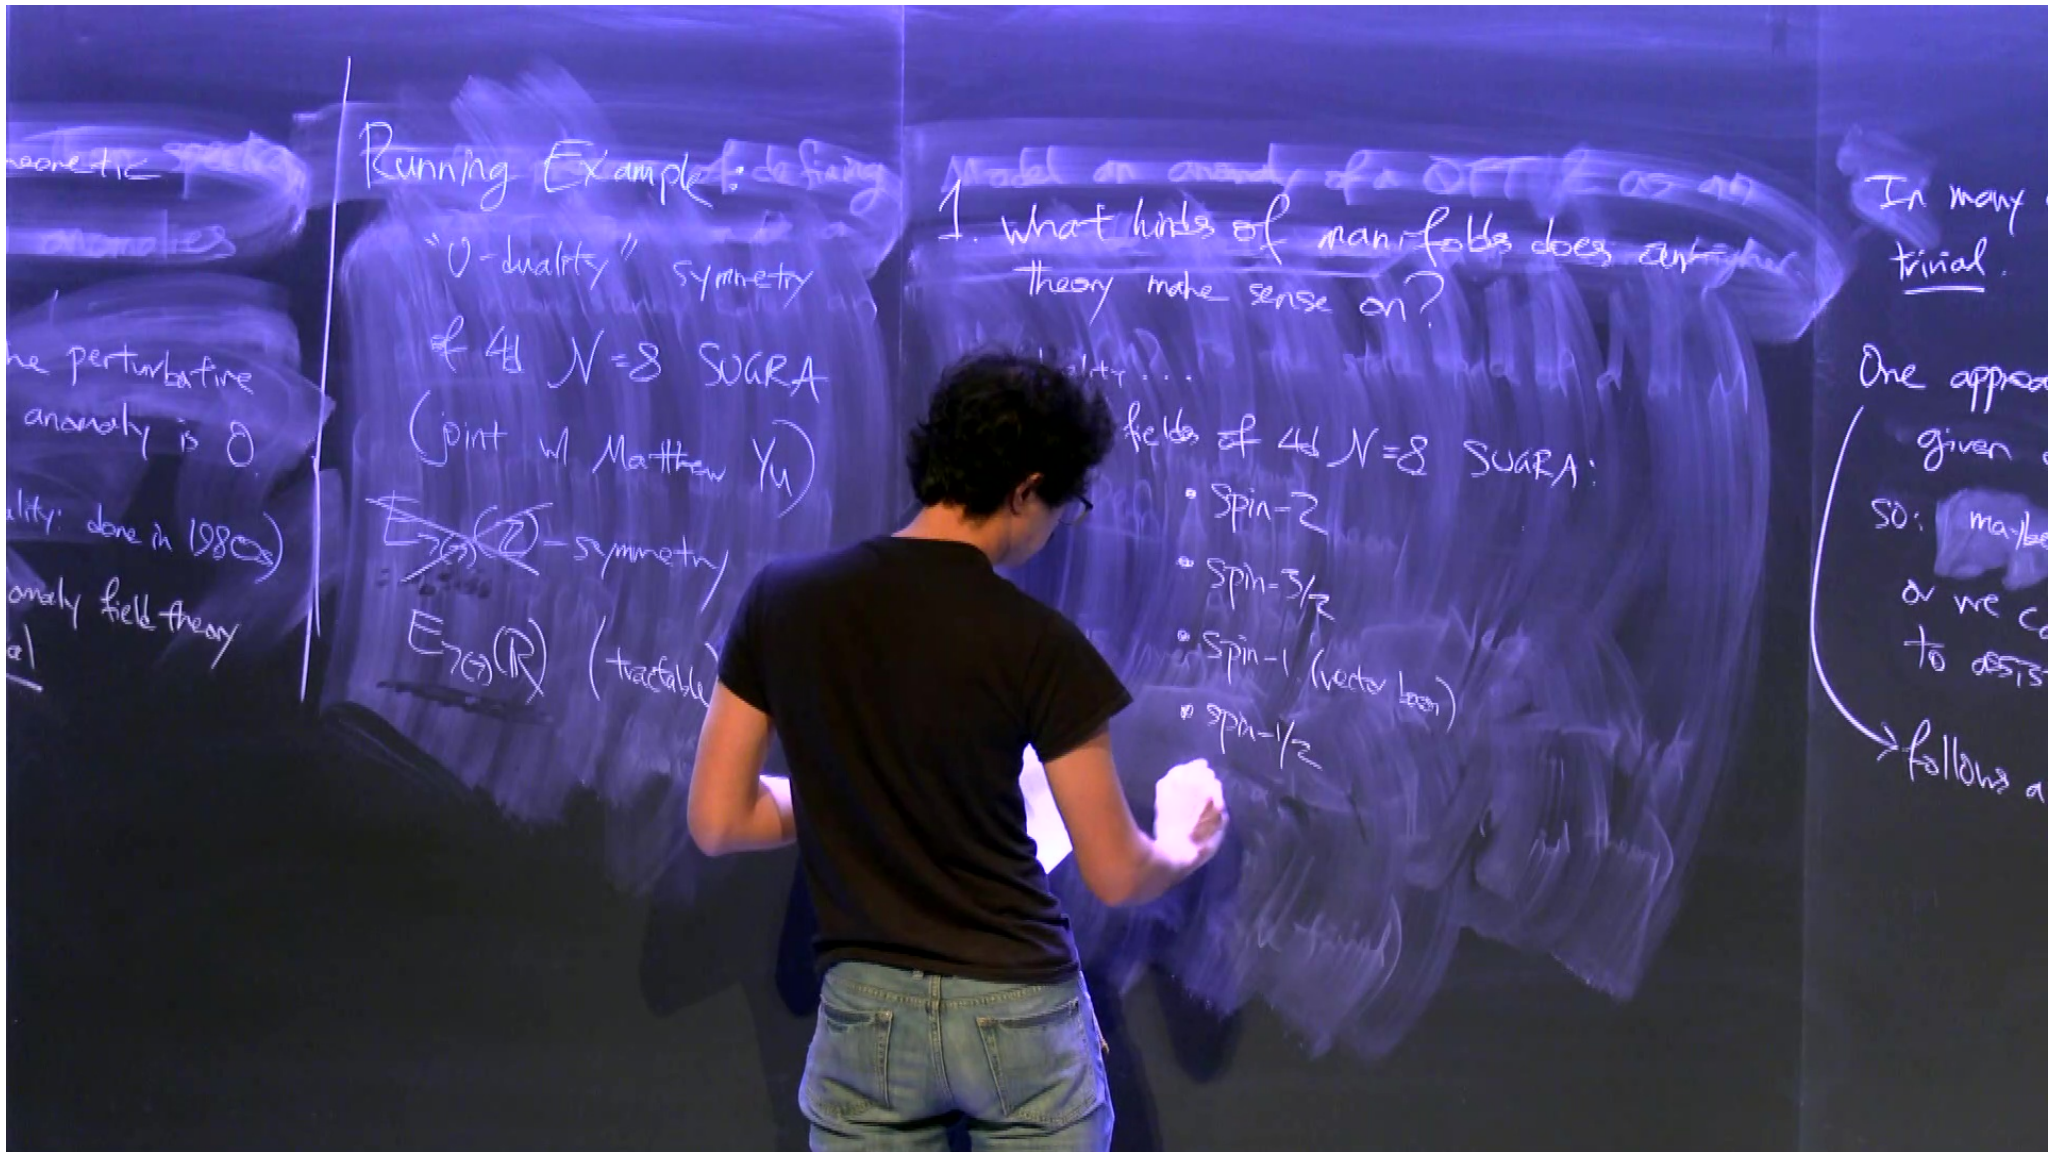 anomalies
he perturbative
anomaly is 0.
ality: done in 1980s)
omaly field theory
al
Running Example:
"U-duality" symmetry
of 4d N=8 SUGRA
(joint w/ Matthew Yu)
E7(7)(Z)-symmetry
E7(7)(R) (tractable
1. What kinds of manifolds does
theory make sense on?
ality...
fields of 4d N=8 SUGRA:
• Spin-2
• Spin-3/2
• Spin-1 (vector boson)
• Spin-1/2
In many
trivial.
One approa
given
so: maybe
or we co
to assis
follows a